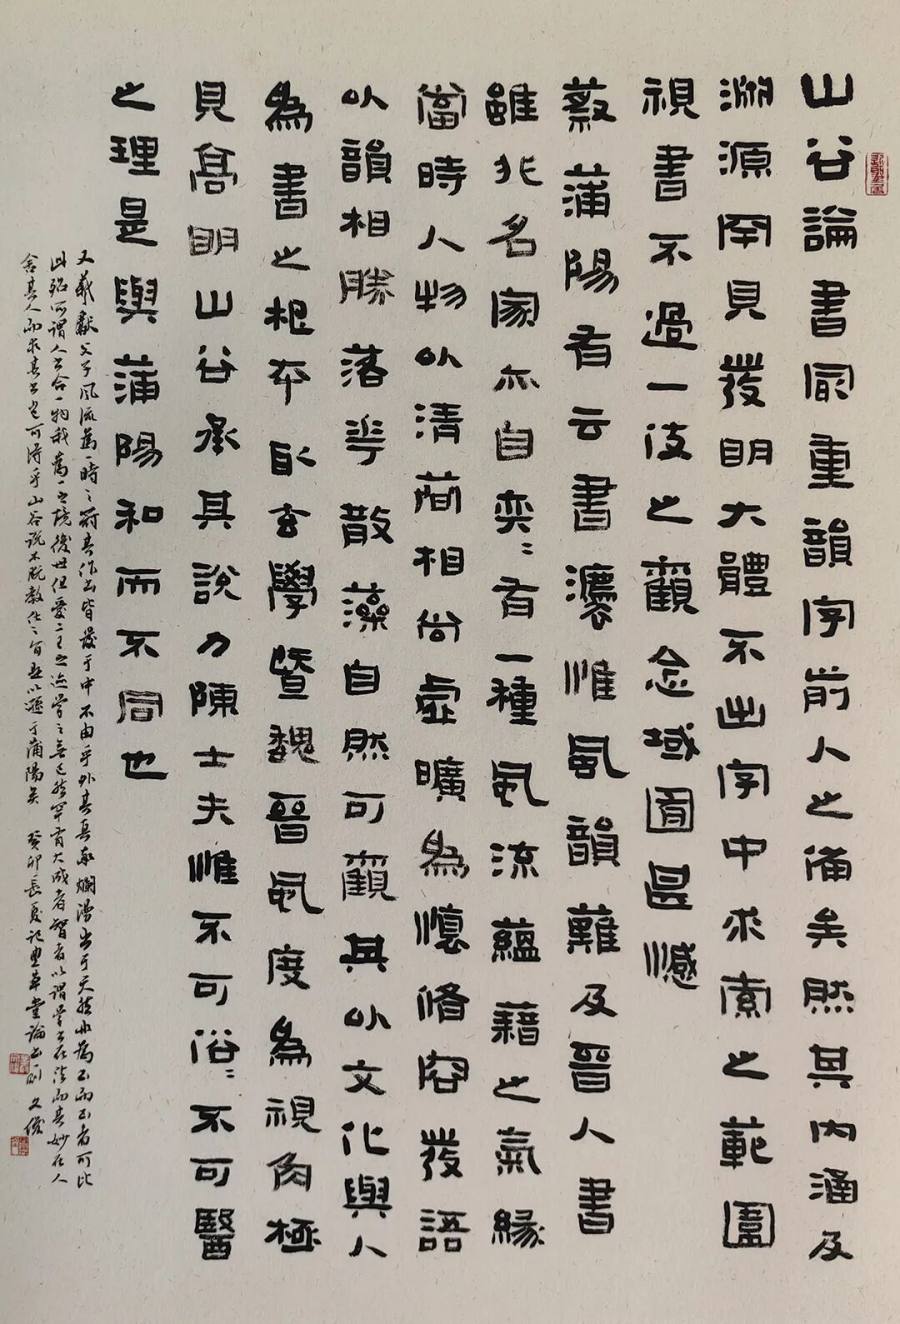 山谷論書最重韻字前人之備矣然其内涵及
淵源罕見發明大體不出字中求索之範圍
視書不過一伎之觀念域囿甚憾
蔡蒲陽有云書灋惟風韻難及晉人書
雖非名家亦自奕〻有一種風流蘊藉之氣緣
當時人物以清簡相尚虛曠為懷脩容發語
以韻相勝落華散藻自然可觀其以文化與人
為書之根本取玄學暨魏晉風度為視角極
見高明山谷承其說力陳士夫惟不可俗〻不可醫
之理是與蒲陽和而不同也
又羲獻父子風流為一時之冠其作書皆發于中不由乎外其真率爛漫出于天然
此殆所謂人書合一物我為一之境後世但愛二王之迹學之無已然罕有大成者智者以謂書在法而其妙在人
舍其人而求其書豈可得乎山谷說不脫教化之旨無以遜于蒲陽矣 癸卯長夏記 草堂論書一則 文俊